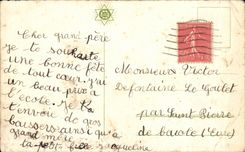 Cher grand père
je te souhaite
une bonne fête
de tout cœur. j'ai
un beau prix à
l'école. Je t'
envoie de gros
baisers ainsi qu'à
grand mère
ta petite fille Jacqueline
Monsieur Victor
Defontaine Le Goulet
par Saint Pierre
de (Eure)